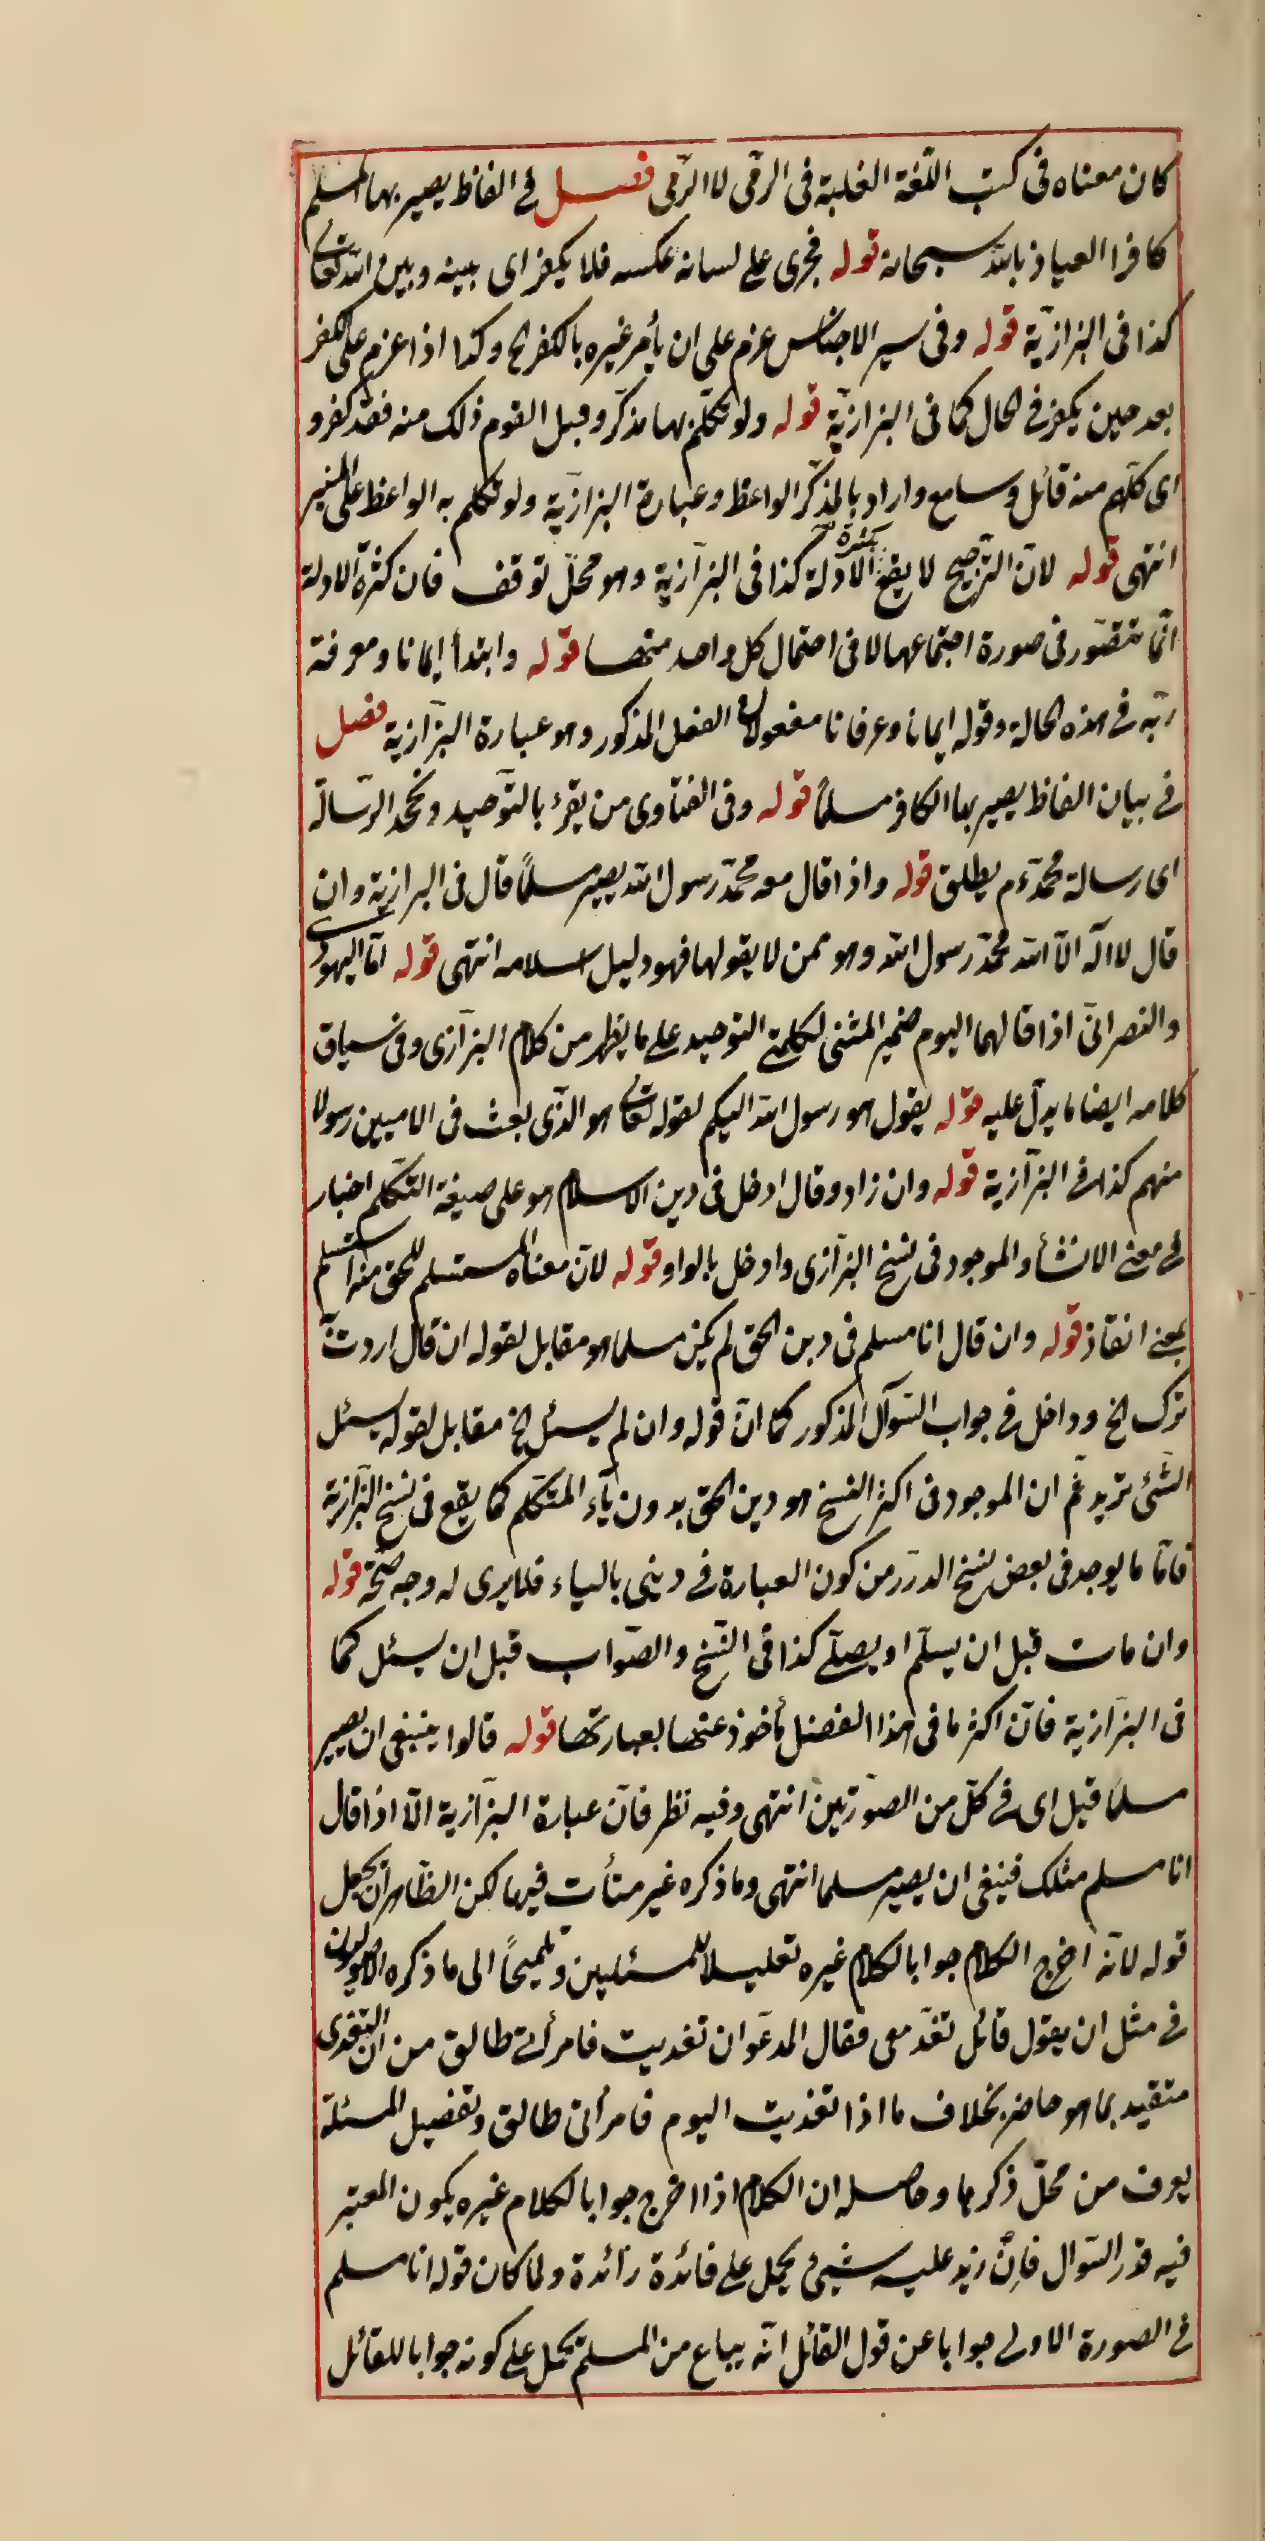 كان معناه فى كتب اللّغة الغلبة فى الرمى لا الرّمى فصل فى الفاظ يصير بها المسلم
كافرا العياذ بالله سبحانه قوله فجرى على لسانه عكسه فلا يكفر اى بينه وبين الله تعالى
كذا فى البزازيّة قوله وفى سير الاجناس عزم على ان يأمر غيره بالكفر الخ وكذا اذا عزم على الكفر
بعد حين يكفر فى الحال كما فى البزازيّة قوله ولو تكلّم بها مذكّر وقبل القوم ذلك منه فقد كفروا
اى كلهم منه قائل وسامع واراد بالمذكّر الواعظ وعبارة البزازيّة ولو تكلم به الواعظ على المنبر
انتهى قوله لانّ الترجيح لا يقع بكثرة الادلّة كذا فى البزازية وهو محلّ توقف فان كثرة الادلة
انّما تتصوّر فى صورة اجتماعها لا فى احتمال كل واحد منها قوله وابتدأ ايمانا ومعرفة
ربّه فى هذه الحالة وقوله ايمانا وعرفانا مفعولان الفعل المذكور وهو عبارة البزازية فصل
فى بيان الفاظ يصير بها الكافر مسلماً قوله وفى الفتاوى من يقرّ بالتّوحيد ويجحد الرّسالة
اى رسالة محمّد عم يطلق قوله واذا قال معه محمّد رسول الله يصير مسلماً قال فى البزازية وان
قال لا اله الّا الله محمّد رسول الله وهو ممن لا يقولها فهو دليل اسلامه انتهى قوله امّا اليهودى
والنصرانىّ اذا قالهما اليوم ضمير المثنى لكلمتى التوحيد على ما يظهر من كلام البزازى وفى سياق
كلامه ايضا ما يدلّ عليه قوله يقول هو رسول الله اليكم لقوله تعالى هو الذّى بعث فى الاميين رسولا
منهم كذا فى البزازية قوله وان زاد وقال ادخل فى دين الاسلام هو على صيغة التّكلّم اخبار
فى معنى الانشأ والموجود فى نسخ البزّازى وادخل بالواو قوله لانّ معناه المستسلم للحق منه استسلم
بمعنى انقاذ قوله وان قال انا مسلم فى دين الحق لم يكن مسلما هو مقابل لقوله ان قال اردت به
ترك الخ وداخل فى جواب السّوآل المذكور كما انّ قوله وان لم يسئل الخ مقابل لقوله يسئل
الشّئ تريد ثم ان الموجود فى اكثر النسخ هو دين الحق بدون يآء المتكلم كما يقع فى نسخ البزازية
فامّا ما يوجد فى بعض نسخ الدرر من كون العبارة فى دينى بالياء فلا يرى له وجه صحّة قوله
وان مات قبل ان يسلّم او يصلّى كذا فى النّسخ والصّواب قبل ان يسئل كما
فى البزازية فانّ اكثر ما فى هذا الفصل مأخوذ عنها بعبارتها قوله قالوا ينبغى ان يصير
مسلما قبل اى فى كلّ من الصّورتين انتهى وفيه نظر فانّ عبارة البزازية امّا اذا قال
انا مسلم مثلك فينبغى ان يصير مسلما انتهى وما ذكره غير متأت فيها لكن الظّاهر ان يجعل
قوله لانّه اخرج الكلام جوابا لكلام غيره تعليلا للمسئلتين وتلميحاً الى ما ذكره الاصوليون
فى مثل ان يقول قائل تغدّ معى فقال المدعوّ ان تغديت فامرأتى طالق من ان التغدى
متقيد بما هو حاضر بخلاف ما اذا تغديت اليوم فامرأتى طالق وتفصيل المسئلة
يعرف من محلّ ذكرها وحاصله ان الكلام اذا اخرج جوابا لكلام غيره يكون المعتبر
فيه قدر السّوال فانّ زيد عليه شئ يحمل على فائدة زائدة ولما كان قوله انا مسلم
فى الصورة الاولى جوابا عن قول القائل انّه يباع من المسلم يحمل على كونه جوابا للقائل